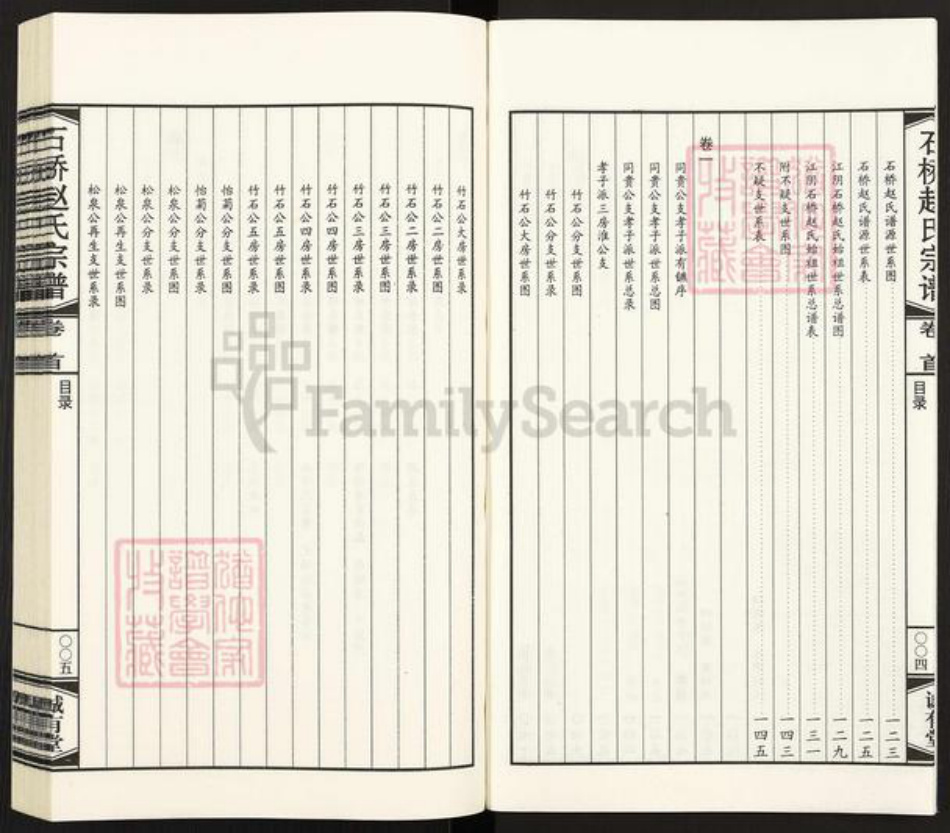 石桥赵氏宗谱
卷首
目录
〇〇四
诚有堂
石桥赵氏谱源世系图 一二三
石桥赵氏谱源世系表 一二五
江阴石桥赵氏始祖世系总谱图 一二九
江阴石桥赵氏始祖世系总谱表 一三一
附不疑支世系图 一四三
不疑支世系表 一四五
卷一
同贵公支孝子派有
同贵公支孝子派世系总图
同贵公支孝子派世系总录
孝子派三房淮公支
竹石公分支世系图
竹石公分支世系录
竹石公大房世系图
竹石公大房世系录
竹石公二房世系图
竹石公二房世系录
竹石公三房世系图
竹石公三房世系录
竹石公四房世系图
竹石公四房世系录
竹石公五房世系图
竹石公五房世系录
怡菊公分支世系图
怡菊公分支世系录
松泉公分支世系图
松泉公分支世系录
松泉公再生支世系图
松泉公再生支世系录
石桥赵氏宗谱
卷首
目录
〇〇五
诚有堂
FamilySearch